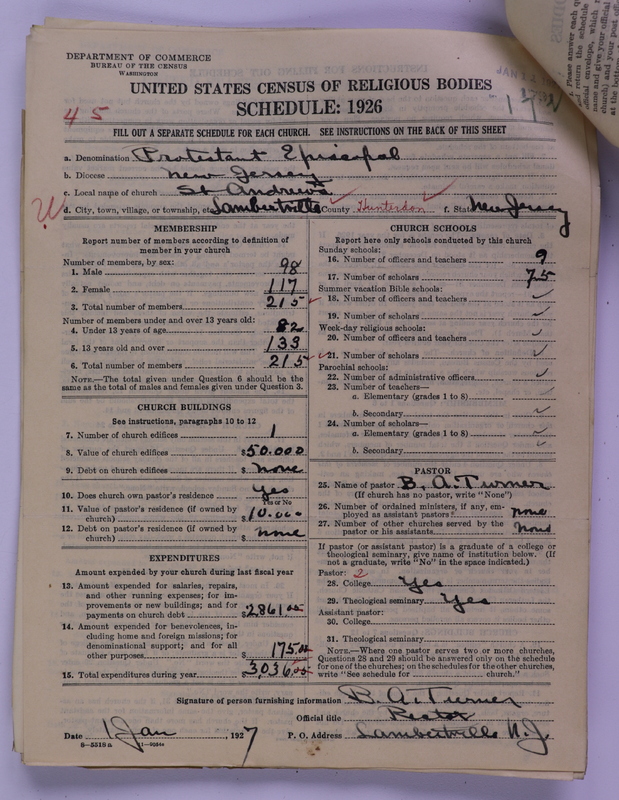 DEPARTMENT OF COMMERCE
BUREAU OF THE CENSUS
WASHINGTON
UNITED STATES CENSUS OF RELIGIOUS BODIES
SCHEDULE: 1926
45
FILL OUT A SEPARATE SCHEDULE FOR EACH CHURCH. SEE INSTRUCTIONS ON THE BACK OF THIS SHEET
a. Denomination Protestant Episcopal
b. Diocese New Jersey
c. Local name of church St Andrew's
d. City, town, village, or township, etc. Lambertville County Hunterdon f. State New Jersey
MEMBERSHIP
Report number of members according to definition of
member in your church
Number of members, by sex:
1. Male 98
2. Female 117
3. Total number of members 215
Number of members under and over 13 years old:
4. Under 13 years of age 82
5. 13 years old and over 133
6. Total number of members 215
NOTE.—The total given under Question 6 should be the
same as the total of males and females given under Question 3.
CHURCH BUILDINGS
See instructions, paragraphs 10 to 12
7. Number of church edifices 1
8. Value of church edifices $50.000
9. Debt on church edifices $ none
10. Does church own pastor's residence yes
Yes or No
11. Value of pastor's residence (if owned by
church) $10.000
12. Debt on pastor's residence (if owned by
church) $ none
EXPENDITURES
Amount expended by your church during last fiscal year
13. Amount expended for salaries, repairs,
and other running expenses; for im-
provements or new buildings; and for
payments on church debt $2861.00
14. Amount expended for benevolences, in-
cluding home and foreign missions; for
denominational support; and for all
other purposes $175.00
15. Total expenditures during year $3,036.00
CHURCH SCHOOLS
Report here only schools conducted by this church
Sunday schools:
16. Number of officers and teachers 9
17. Number of scholars 75
Summer vacation Bible schools:
18. Number of officers and teachers
19. Number of scholars
Week-day religious schools:
20. Number of officers and teachers
21. Number of scholars
Parochial schools:
22. Number of administrative officers
23. Number of teachers—
a. Elementary (grades 1 to 8)
b. Secondary
24. Number of scholars—
a. Elementary (grades 1 to 8)
b. Secondary
PASTOR
25. Name of pastor B. A. Turner
(If church has no pastor, write "None")
26. Number of ordained ministers, if any, em-
ployed as assistant pastors none
27. Number of other churches served by the
pastor or his assistants none
If pastor (or assistant pastor) is a graduate of a college or
theological seminary, give name of institution below. (If
not a graduate, write "No" in the space indicated.)
Pastor: 2
28. College Yes
29. Theological seminary Yes
Assistant pastor:
30. College
31. Theological seminary
NOTE.—Where one pastor serves two or more churches,
Questions 28 and 29 should be answered only on the schedule
for one of the churches; on the schedules for the other churches,
write "See schedule for church."
Signature of person furnishing information B. A. Turner
Official title Rector
Date 1 Jan 1927 P. O. Address Lambertville N. J.
8—5518a 11—9034a